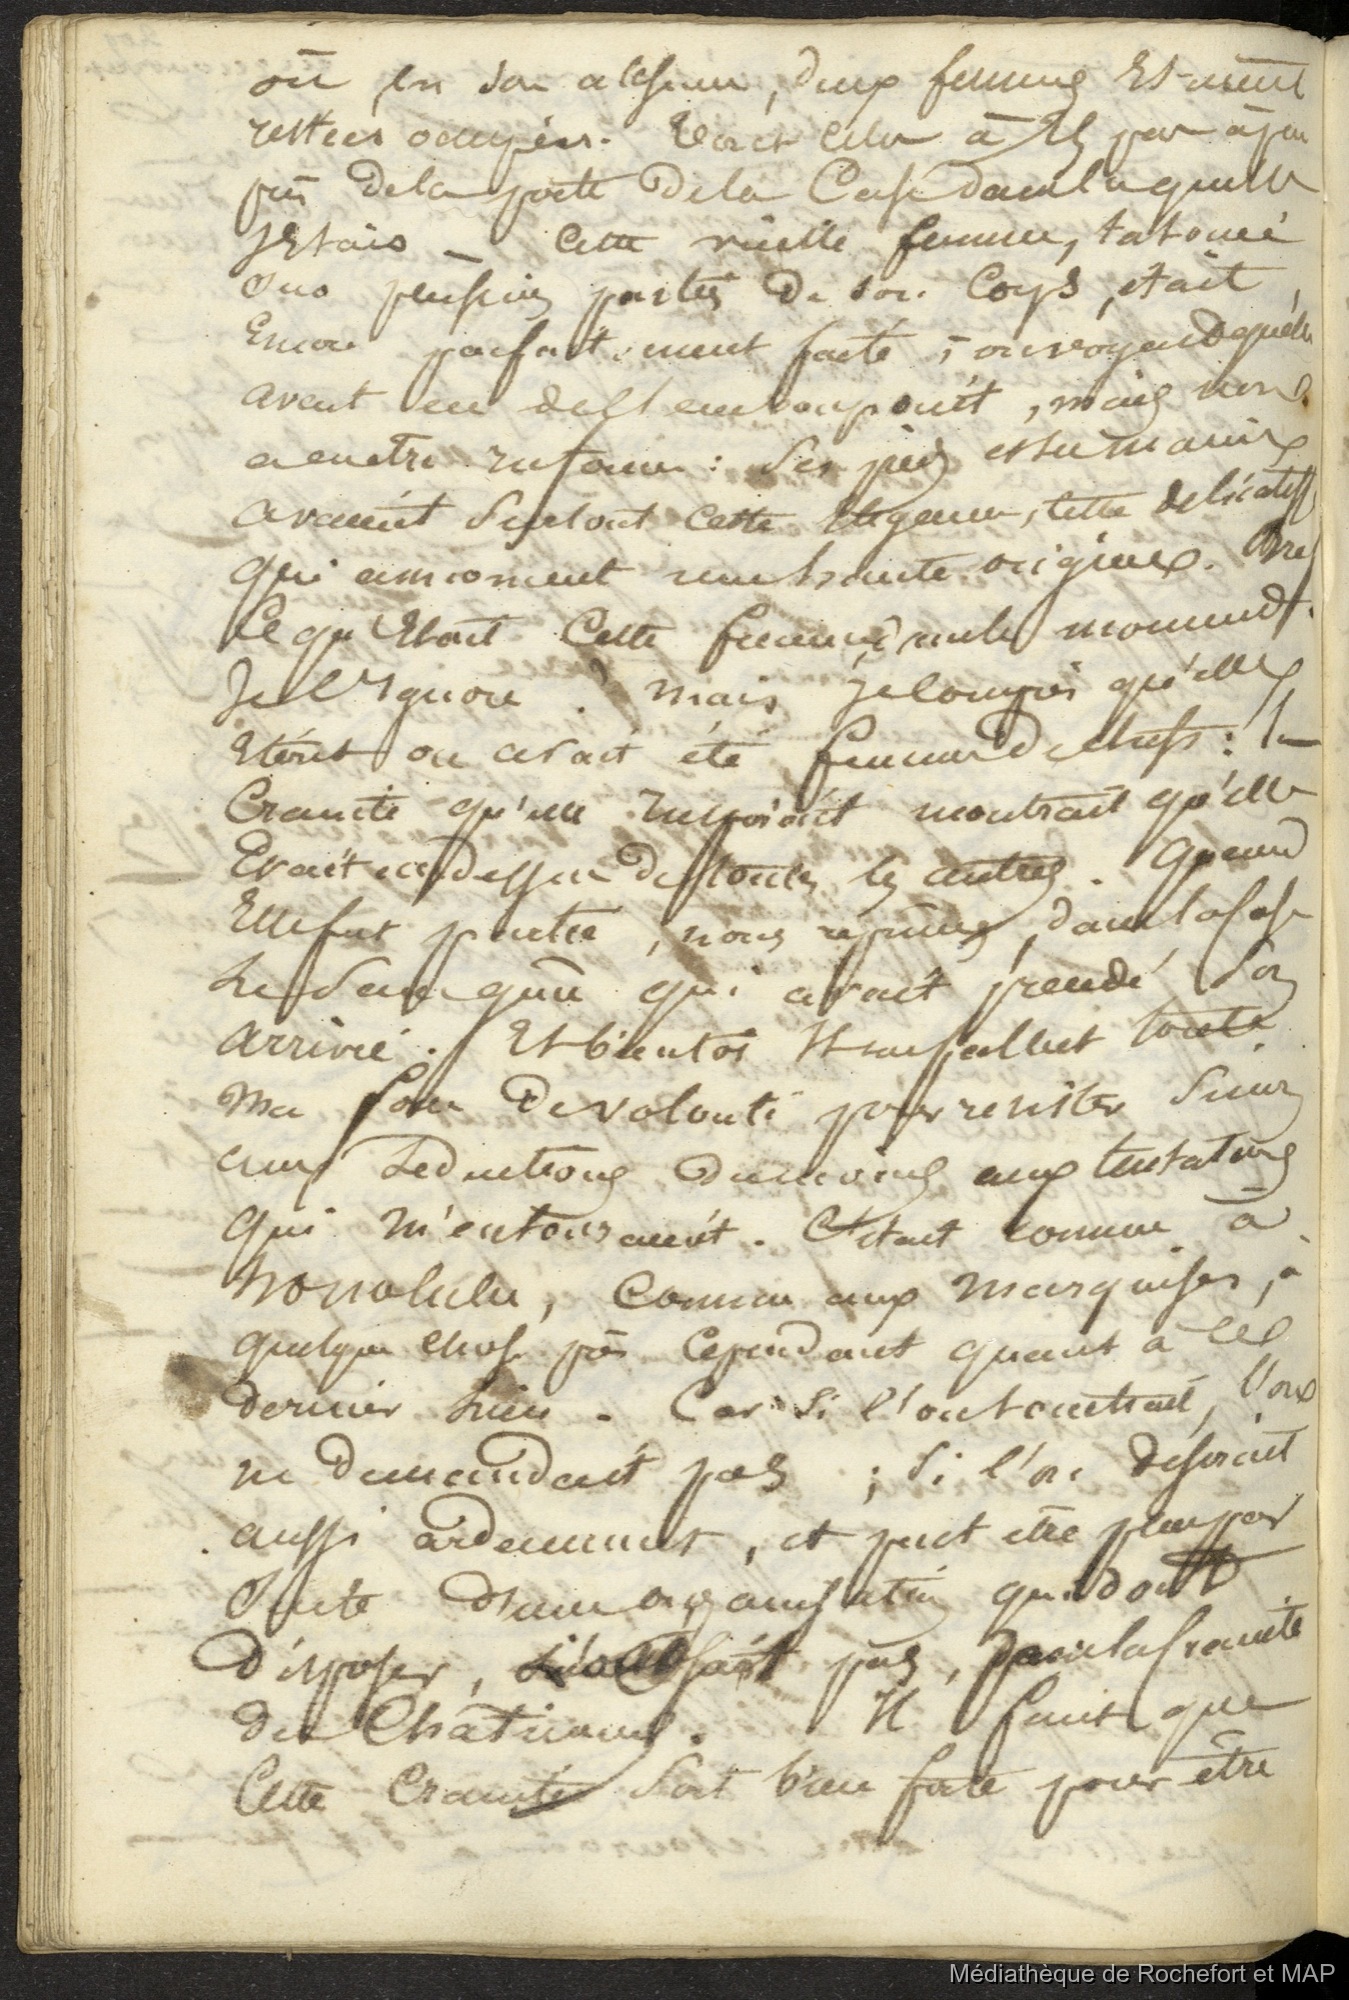 où en son absence, deux femmes Etaient
restées occupées. tout cela à 25 pas à peu
près de la porte de la Case dans laquelle
j'Etais _ Cette vieille femme, tatouée
sur plusieurs parties de son Corps, était
Encore parfaitement faite ; on voyait qu'elle
avait eu de l'embonpoint, mais sans
en etre : Ses pieds et ses mains
avaient surtout cette Elegance, cette delicatesse
qui annoncent une haute origine. Bref
Ce qu'Etait Cette femme dans le moment
Je l'Ignore. Mais je compris qu'elle
Etait ou avait été femme de chefs : la
Crainte qu'elle Inspirait montrait qu'elle
Etait au dessus de toutes les autres. Quand
Elle fut partie, nous reprîmes, dans la Case
le Sans gêne qui avait précédé Son
arrivée. Et bientôt Il me fallut toute
ma force de volonté pour resister Sinon
aux Seductions du moins aux tentations
qui m'entouraient. C'etait comme à
honolulu, Comme aux Marquises, à
quelque chose près Cependant quant à ce
dernier lieu. Car si l'on montrait, l'on
ne demandait pas ; Si l'on desirait
aussi ardemment, et peut être plus par
Suite d'une organisation qui doit
disposer, pas, par la Crainte
du Châtiment. Il faut que
Cette Crainte Soit bien forte pour être
Médiathèque de Rochefort et MAP